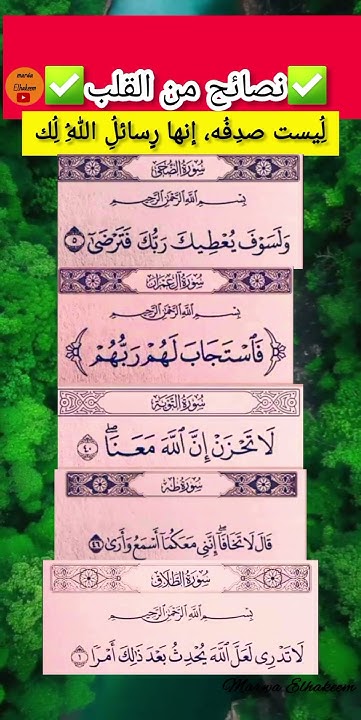 marwa
Elhakeem
✅نصائح من القلب✅
لِيست صدِفُه، إنها رِسائلُِ اللهُِ لُِك
سُورَةُ الضُّحَىٰ
بِسْمِ اللَّهِ الرَّحْمَٰنِ الرَّحِيمِ
وَلَسَوْفَ يُعْطِيكَ رَبُّكَ فَتَرْضَىٰٓ ٥
سُورَةُ آلِ عِمْرَان
بِسْمِ اللَّهِ الرَّحْمَٰنِ الرَّحِيمِ
﴿فَٱسْتَجَابَ لَهُمْ رَبُّهُمْ﴾
سُورَةُ التَّوْبَة
لَا تَحْزَنْ إِنَّ ٱللَّهَ مَعَنَاۖ ٤٠
سُورَةُ طه
قَالَ لَا تَخَافَآۖ إِنَّنِي مَعَكُمَآ أَسْمَعُ وَأَرَىٰ ٤٦
سُورَةُ الطَّلَاق
بِسْمِ اللَّهِ الرَّحْمَٰنِ الرَّحِيمِ
لَا تَدْرِي لَعَلَّ ٱللَّهَ يُحْدِثُ بَعْدَ ذَٰلِكَ أَمْرًا ١
Marwa Elhakeem